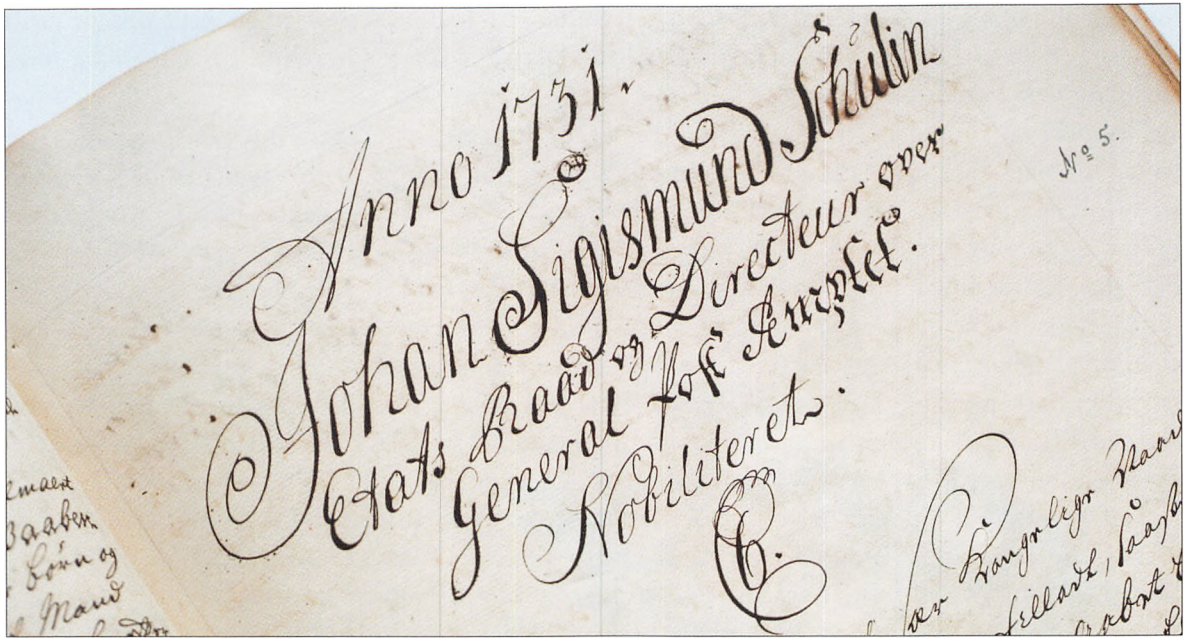 Anno 1731.
Johan Sigismund Schulin
Etats Raad og Directeur over
General Post Amptet.
Nobiliteret.
No 5.
Baaben
børn og
Mand
Kongelige